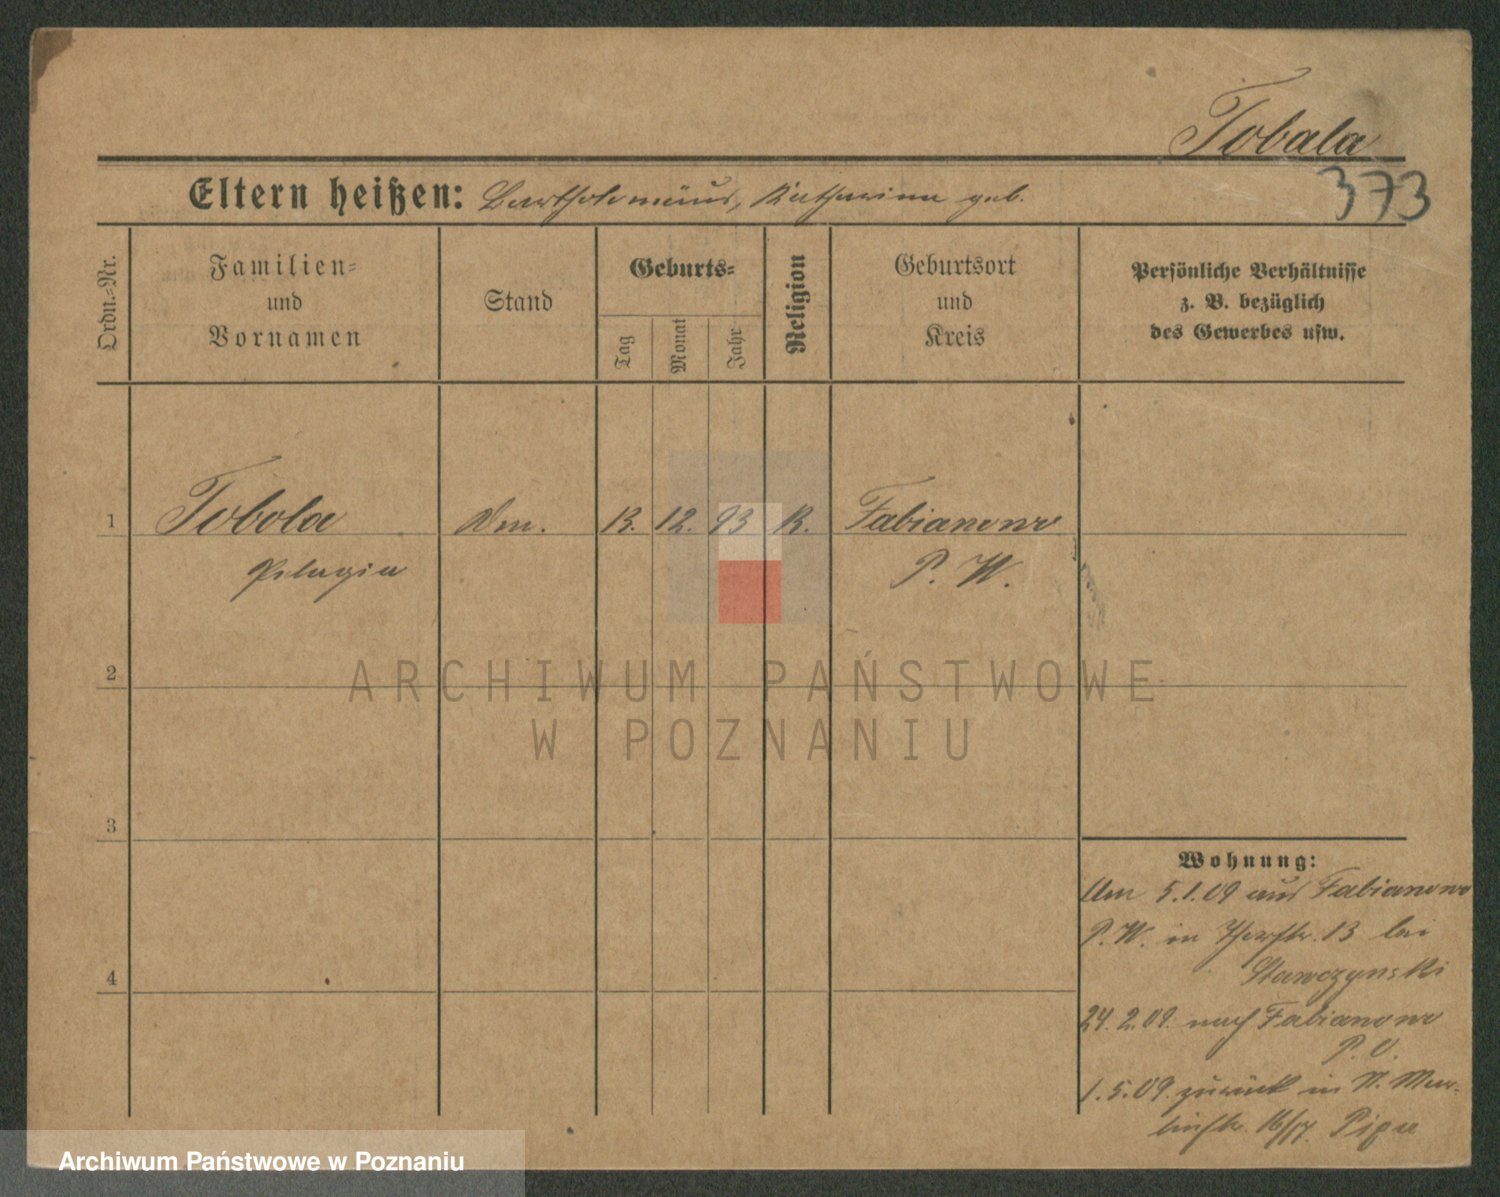 Tobala
373
Eltern heißen: Bartholomäus, Katharina geb.
Ordn.-Nr.
Familien-
und
Vornamen
Stand
Geburts-
Tag
Monat
Jahr
Religion
Geburtsort
und
Kreis
Persönliche Verhältnisse
z. B. bezüglich
des Gewerbes usw.
1 Tobola 13. 12. 93 K. Fabianowo
Pelagia P. W.
2
3
4
ARCHIWUM PAŃSTWOWE
W POZNANIU
Wohnung:
5.1.09 aus Fabianowo
P. W. in 13 bei
Stawczynski
24.2.09. nach Fabianowo
P. O.
1.5.09. zurück in
16/17.
Archiwum Państwowe w Poznaniu